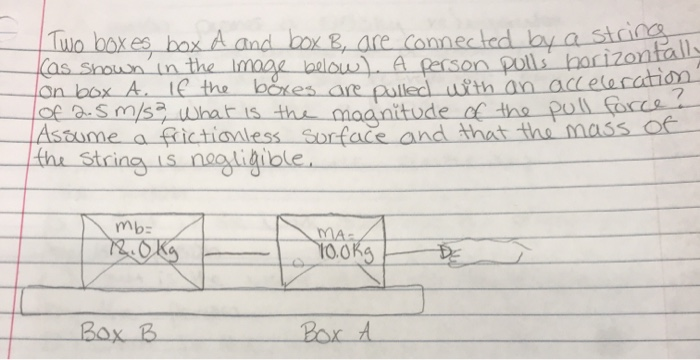 Two boxes, box A and box B, are connected by a string
(as shown in the image below). A person pulls horizontally
on box A. If the boxes are pulled with an acceleration
of 2.5 m/s², what is the magnitude of the pull force?
Assume a frictionless surface and that the mass of
the string is negligible.
mb= mA=
12.0kg 10.0kg
Box B Box A